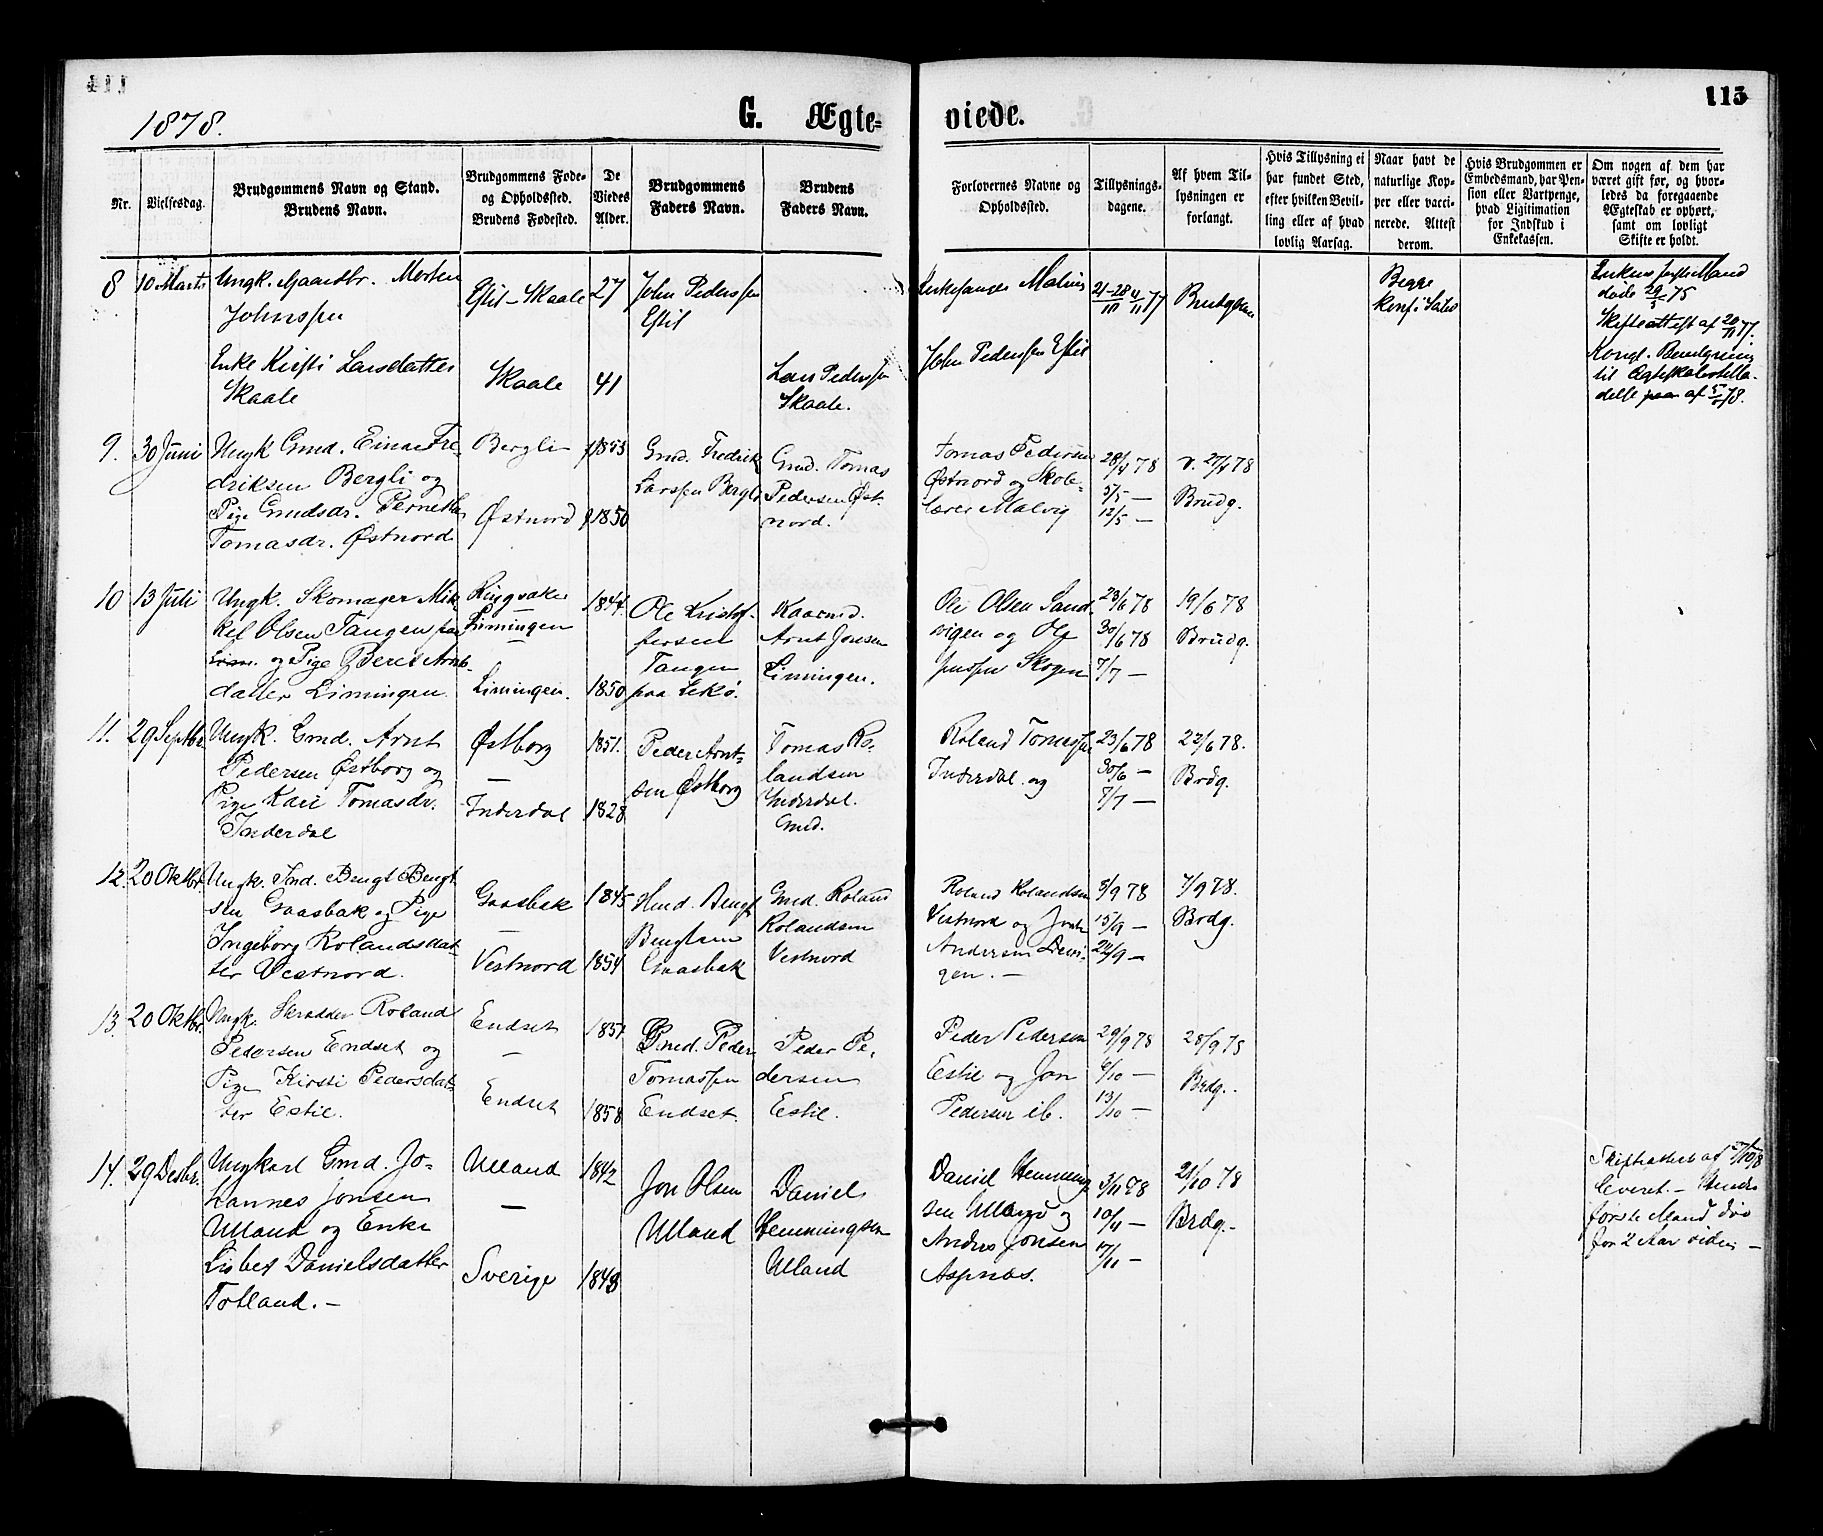 1878.
G. Ægte-
viede.
115
Nr.
Vielsesdag.
Brudgommens Navn og Stand.
Brudens Navn.
Brudgommens Føde-
og Opholdssted.
Brudens Fødested.
De
Viedes
Alder.
Brudgommens
Faders Navn.
Brudens
Faders Navn.
Forlovernes Navne og
Opholdssted.
Tillysnings-
dagene.
Af hvem Til-
lysningen er
forlangt.
Hvis Tillysning ei
har fundet Sted,
efter hvilken Bevil-
ling eller af hvad
lovlig Aarsag.
Naar havt de
naturlige Kop-
per eller vacci-
nerede. Attest
derom.
Hvis Brudgommen er
Embedsmand, har Pen-
sion eller Vartpenge,
hvad Ligitimation
for Indskud i
Enkekassen.
Om nogen af dem har
været gift før, og hvor-
ledes da foregaaende
Ægteskab er ophørt,
samt om lovligt
Skifte er holdt.
8
10 Marts
Ungk. Gaardbr. Morten
Johnssen
Enke Kirsti Larsdatter
Skaale
Estil - Skaale
Skaale
27
41
John Pederssen
Estil
Lars Pederssen
Skaale.
Kirkesanger Malvig
John Pederssen Estil
Brudgom
Begge
Enkens første Mand
døde 29/5 75
Skifteattest af 20/11 77.
Kongl. Bevilgning
til Ægteskabets
af 5/ 78.
9.
30 Juni
Ungk Gmd. Einar Fre
driksen Bergli og
Pige Gmdsdr. Pernetha
Tomasdr. Østnord
Bergli
Østnord
1853
1850
Gmd. Fredrik
Larssen Bergli
Gmd. Tomas
Pedersen Øst
nord.
Tomas Pedersen
Østnord og Skole-
lærer Malvig
28/4 78
5/5 —
12/5 —
v. 27/4 78
Brudg.
10
13 Juli
Ungk. Skomager Mik
kel Olsen Tangen paa
og Pige Beret Arnt-
datter Limingen
Ringsaker
Limingen
—
Limingen.
1844.
1850
Ole Kristof-
fersen
Tangen
paa Lekø.
Arnt Jonsen
Limingen.
Ole Olsen Sand
vigen og Ole
Jenssen Skogen
23/6 78
30/6 78
7/7 —
19/6 78
Brudg.
11.
29 Septbr.
Ungk. Gmd. Arnt
Pedersen Østborg og
Pige Kari Tomasdr.
Inderdal
Østborg
—
Inderdal
1851.
1828
Peder Arnt-
sen Østborg
Tomas Ro-
landsen
Inderdal.
Gmd.
Roland Tomassen
Inderdal og
23/6 78
30/6 —
7/7 —
22/6 78.
Brdg.
12.
20 Oktbr.
Ungk. Ind. Bengt Bengt
sen Gaasbak og Pige
Ingeborg Rolandsdat-
ter Vestnord.
Gaasbak
—
Vestnord
1845
1854
Hmd. Bengt
Bengtsen
Gaasbak
Gmd. Roland
Rolandsen
Vestnord
Roland Rolandsen
Vestnord og
Andersen Devi-
gen. —
8/9 78
15/9 —
22/9 —
7/9 78.
Brdg.
13.
20 Oktbr.
Ungk. Skrædder Roland
Pedersen Endset og
Pige Kirsti Pedersdat-
ter Estil.
Endset
—
Endset
1851
1858
Gmd. Peder
Tomassen
Endset.
Peder Pe-
dersen
Estil.
Peder Pedersen
Estil og Jon
Pedersen ib.
29/9 78
6/10 —
13/10 —
28/9 78
Brdg.
14.
29 Decbr.
Ungkarl Gmd. Jo-
hannes Jonsen
Ulland og Enke
Lisbet Danielsdatter
Totland. —
Ulland
—
Sverige
1842
1848
Jon Olsen
Ulland
Daniel
Hemmingsen
Ulland
Daniel Hemming
sen Ulland og
Anders Jonsen
Aspnæs.
3/11 78
10/11 —
17/11 —
21/10 78
Brdg. -
Skifteattest af
leveret. —
første Mand død
for 2 Aar siden —